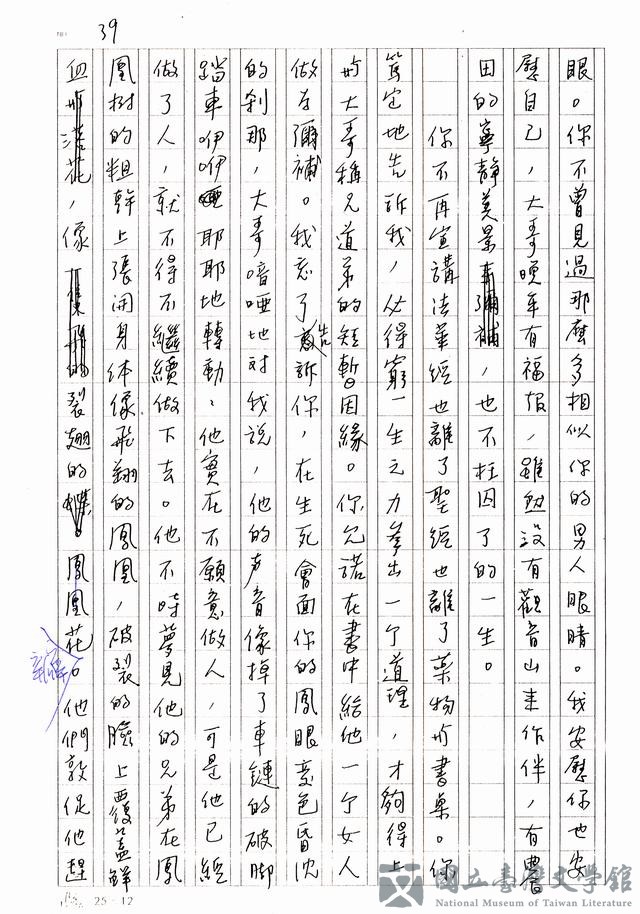 39
眼。你不曾見過那麼多相似你的男人眼睛。我安慰你也安
慰自己，大哥晚年有福报，雖然沒有觀音山来作伴，有農
田的寧靜美景，也不枉囚了的一生。
你不再宣講法華經也離了聖經也離了藥物所書桌。你
篤定地告訴我，必得窮一生之力拿出一个道理，才夠得上
所大哥稱兄道弟的短暫因緣。你允諾在書中給他一个女人
做為彌補。我忘了告訴你，在生死會面你的鳳眼亮色昏沈
的剎那，大哥喑啞地对我說，他的声音像掉了車鏈的破脚
踏車咿咿耶耶地轉動：他實在不願意做人，可是他已經
做了人，就不得不繼續做下去。他不時夢見他的兄弟在鳳
凰树的粗幹上張開身体像飛翔的鳳凰，破裂的臉上覆蓋鲜
血，像裂翅的鳳凰花。他們敦促他趕
25·12
國立臺灣文學館
National Museum of Taiwan Literature